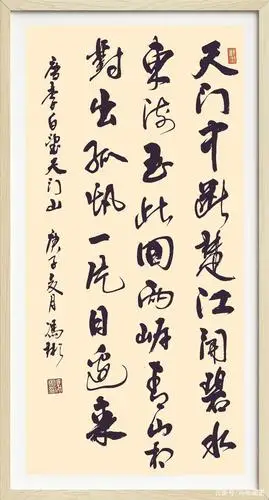 天门中斷楚江開碧水
東流至此回兩岸青山相
對出孤帆一片日邊來
唐李白望天门山 庚子夏月 馮彬